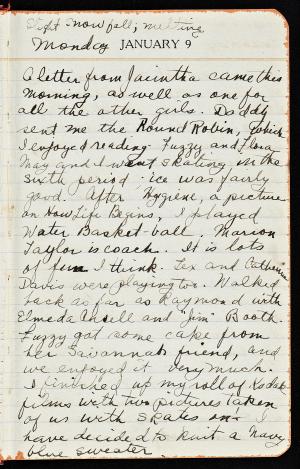 Light snow fall; melting
Monday JANUARY 9
A letter from Jacintha came this
morning, as well as one for
all the other girls. Daddy
sent me the Round Robin, which
I enjoyed reading. Fuzzy and Flora
May and I went skating in the
sixth period; ice was fairly
good. After Hygiene, a picture
on How Life Begins, I played
Water Basket-ball. Marion
Taylor is coach. It is lots
of fun I think. Lex and Catherine
Davis were playing too. Walked
back as far as Raymond with
Ansell and "Jim" Booth.
Fuzzy got some cake from
her Savannah friend, and
we enjoyed it very much.
I finished up my roll of Kodak
films with two pictures taken
of us with skates on. I
have decided to knit a navy
blue sweater.